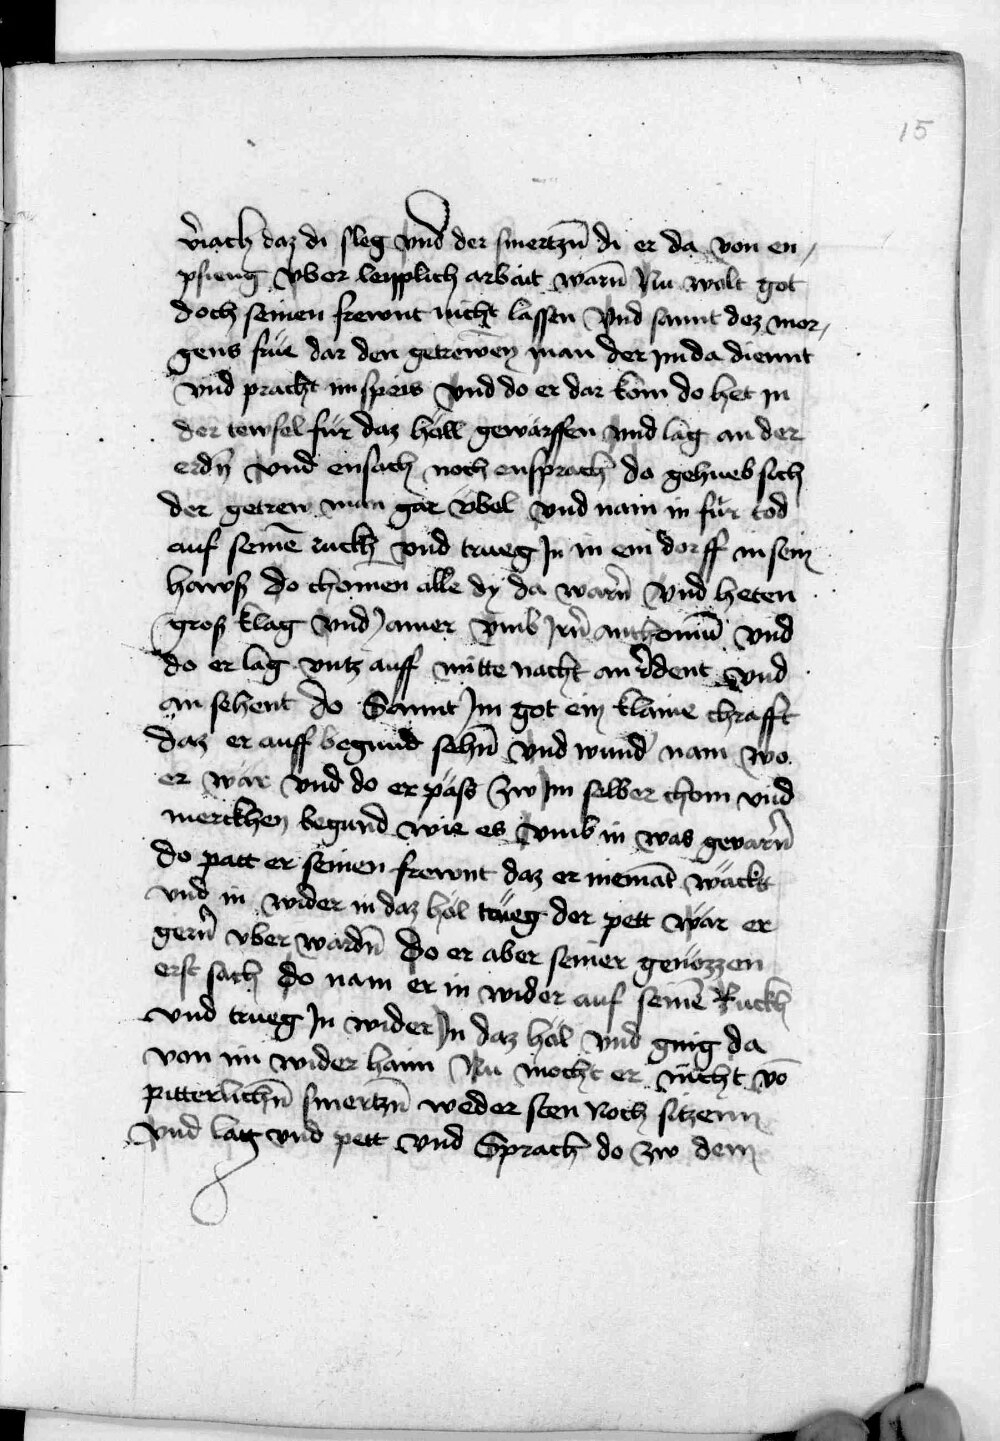 15
v̾iach daz di sleg vnd der smertzn̄ di er da von en /
pfieng vber leyplich arbait warn̄ Nu wolt got
doch seinen frewnt nicht lassen vnd sannt dez mor /
gens frǖe dar den getrewēn man der im da diennt
vnd pracht im speis vnd do er dar kom do het in
der tewfel für daz höll gewarffen vnd lag an der
erdn̄ vnd ensach noch ensprach do gehueb sich
der getrew man gar vbel vnd nam in für tod
auf seinē ruckh vnd trueg Jn in ein dorff in sein
haws do chomen alle dy da warn̄ vnd heten
gros klag vnd Jamer vmb Jrn̄ anthoniū vnd
do er lag vntz auff mitte nacht an r̾dent vnd
an sehent do Sannt Jm got ein klaine chrafft
daz er auff begund sehn̄ vnd wund nam wo
er wär vnd do er päss zw Jm selber chom vnd
merckhen begund wie es vmb in was gevarn̄
do patt er seinen frewnt daz er niemāt wäckt
vnd in wider in daz höl trüeg der pett wär er
gern̄ vber wardn̄ Do er aber seiner genözzen
erst sach do nam er in wider auf seinē Ruckh
vnd trueg Jn wider Jn daz höl vnd ging da
von im wider haim Nu mocht er nicht vō
pitterlichn̄ smertzn̄ weder sten noch sitzenn
vnd lag vnd pett vnd Sprach do zw dem